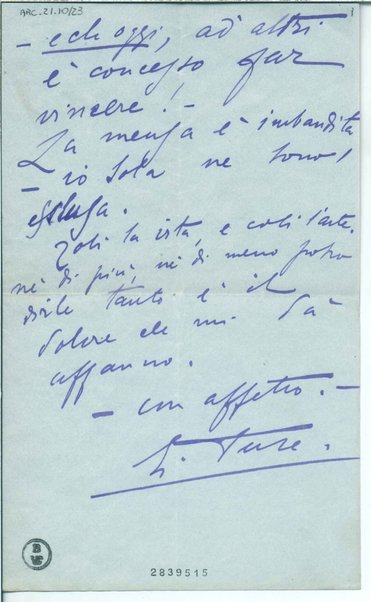 ARC. 21.10/23
– e ch oggi, ad altri
è concesso far
vincere! –
La mensa è imbandita
– io sola ne sono
esclusa.
Così la vita, e così l'arte.
nè di più, nè di meno potrò
dirle tanto è il
dolore che mi dà
affanno.
– con affetto. –
E. Duse.
2839515